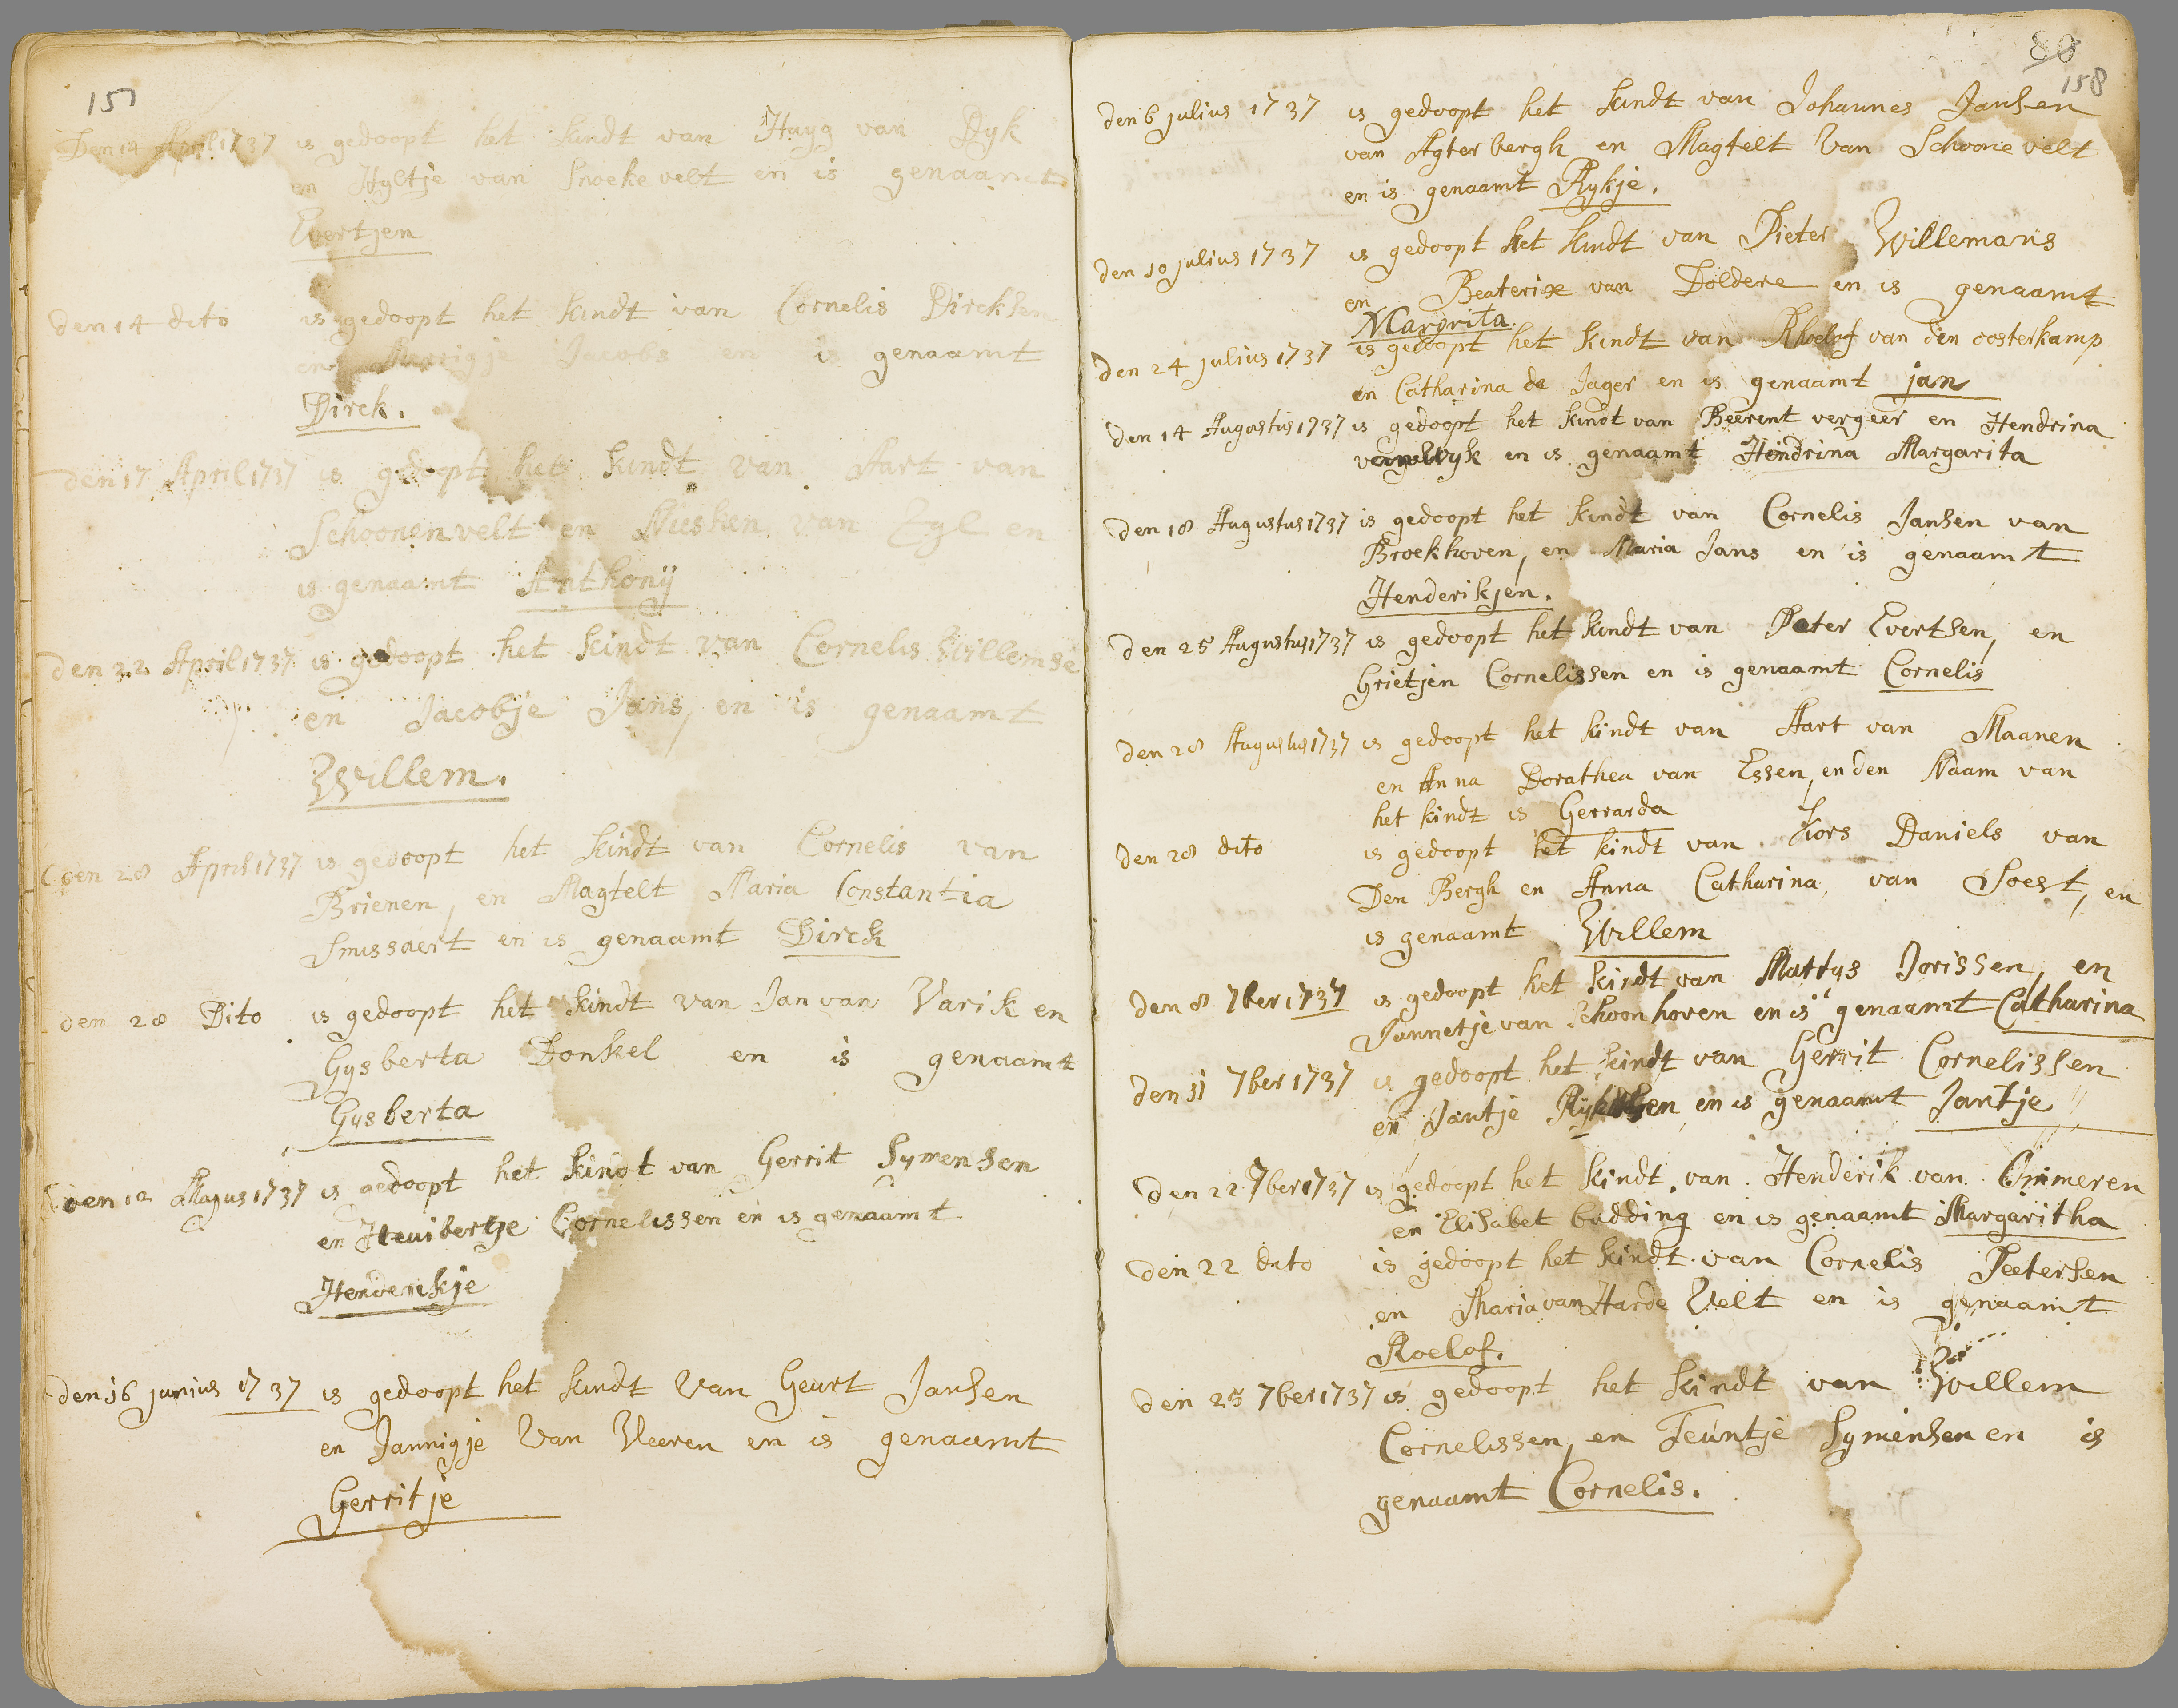 157
Den 14 April 1737 is gedoopt het kindt van Huyg van Dyk
en Hyltje van Snoekevelt en is genaamt
Evertjen
den 14 dito is gedoopt het kindt van Cornelis Dircksen
en Merrigje Jacobs en is genaamt
Dirck.
den 17 April 1737 is gedoopt het kindt van Aart van
Schoonenvelt en van en
is genaamt Anthonij
den 22 April 1737 is gedoopt het kindt van Cornelis Willemse
en Jacobje Jans, en is genaamt
Willem.
den 28 April 1737 is gedoopt het kindt van Cornelis van
Brienen, en Magtelt Maria Constantia
Smissaert en is genaamt Dirck
den 28 Dito is gedoopt het kindt van Jan van Varik en
Gysberta Donkel en is genaamt
Gysberta
den 12 Mayus 1737 is gedoopt het kindt van Gerrit Symensen
en Heuibertje Cornelissen en is genaamt
Henderikje
den 16 junius 1737 is gedoopt het kindt van Geurt Jansen
en Jannigje van Veeren en is genaamt
Gerritje
80
158
den 6 julius 1737 is gedoopt het kindt van Johannes Jansen
van Agterbergh en Magtelt van Schoonevelt
en is genaamt Rykje.
den 10 julius 1737 is gedoopt het kindt van Pieter Willemans
en Beaterix van Doldere en is genaamt
Margrita.
den 24 julius 1737 is gedoopt het kindt van Rhoelof van den oosterkamp
en Catharina de Jager en is genaamt jan
den 14 Augustus 1737 is gedoopt het kindt van Beerent vergeer en Hendrina
en is genaamt Hendrina Margarita
den 18 Augustus 1737 is gedoopt het kindt van Cornelis Jansen van
Broekhoven, en Maria Jans en is genaamt
Henderikjen.
den 25 Augustus 1737 is gedoopt het kindt van Peter Evertsen, en
Grietjen Cornelissen en is genaamt Cornelis
den 28 Augustus 1737 is gedoopt het kindt van Aart van Maanen
en Anna Dorathea van Essen, en den Naam van
het kindt is Gerrarda
den 28 dito is gedoopt het kindt van Kors Daniels van
Den Bergh en Anna Catharina, van Soest, en
is genaamt Willem
den 8 7ber 1737 is gedoopt het kindt van Mattys Jorissen, en
Jannetje van Schoonhoven en is genaamt Catharina
den 11 7ber 1737 is gedoopt het kindt van Gerrit Cornelissen
en Jantje en is genaamt Jantje
den 22 7ber 1737 is gedoopt het kindt van Henderik van Ommeren
en Elisabet budding en is genaamt Margaritha
den 22 dito is gedoopt het kindt van Cornelis Peetersen
en Maria van Harde Velt en is genaamt
Roelof.
den 25 7ber 1737 is gedoopt het kindt van Willem
Cornelissen, en Teuntje Symensen en is
genaamt Cornelis.